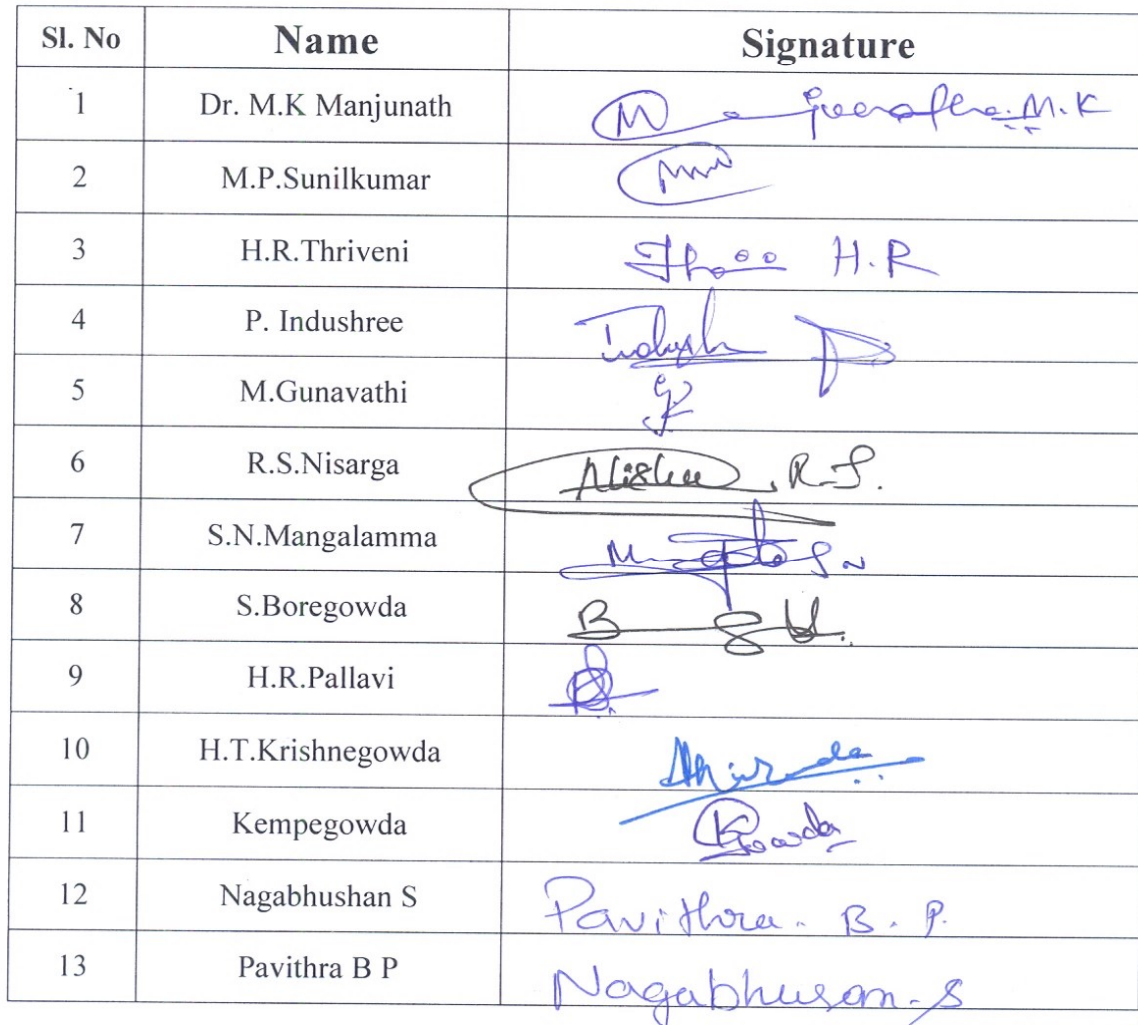 Sl. No Name Signature
1 Dr. M.K Manjunath M.K
2 M.P.Sunilkumar
3 H.R.Thriveni H.R
4 P. Indushree
5 M.Gunavathi
6 R.S.Nisarga R.S.
7 S.N.Mangalamma
8 S.Boregowda
9 H.R.Pallavi
10 H.T.Krishnegowda
11 Kempegowda
12 Nagabhushan S Pavithra. B. P.
13 Pavithra B P Nagabhusan.S